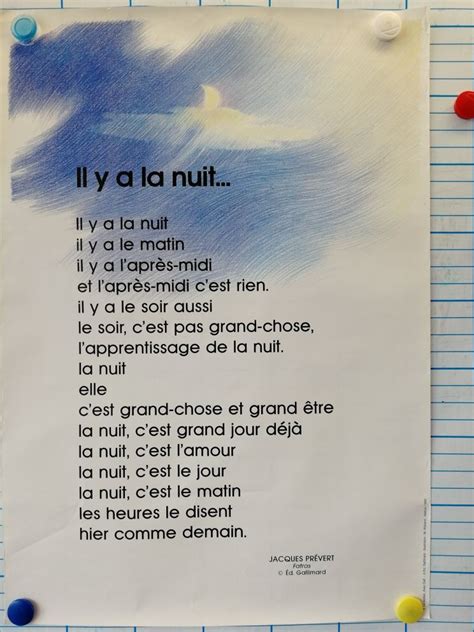 Il y a la nuit...
Il y a la nuit
il y a le matin
il y a l'après-midi
et l'après-midi c'est rien.
il y a le soir aussi
le soir, c'est pas grand-chose,
l'apprentissage de la nuit.
la nuit
elle
c'est grand-chose et grand être
la nuit, c'est grand jour déjà
la nuit, c'est l'amour
la nuit, c'est le jour
la nuit, c'est le matin
les heures le disent
hier comme demain.
JACQUES PRÉVERT
Fatras
© Éd. Gallimard